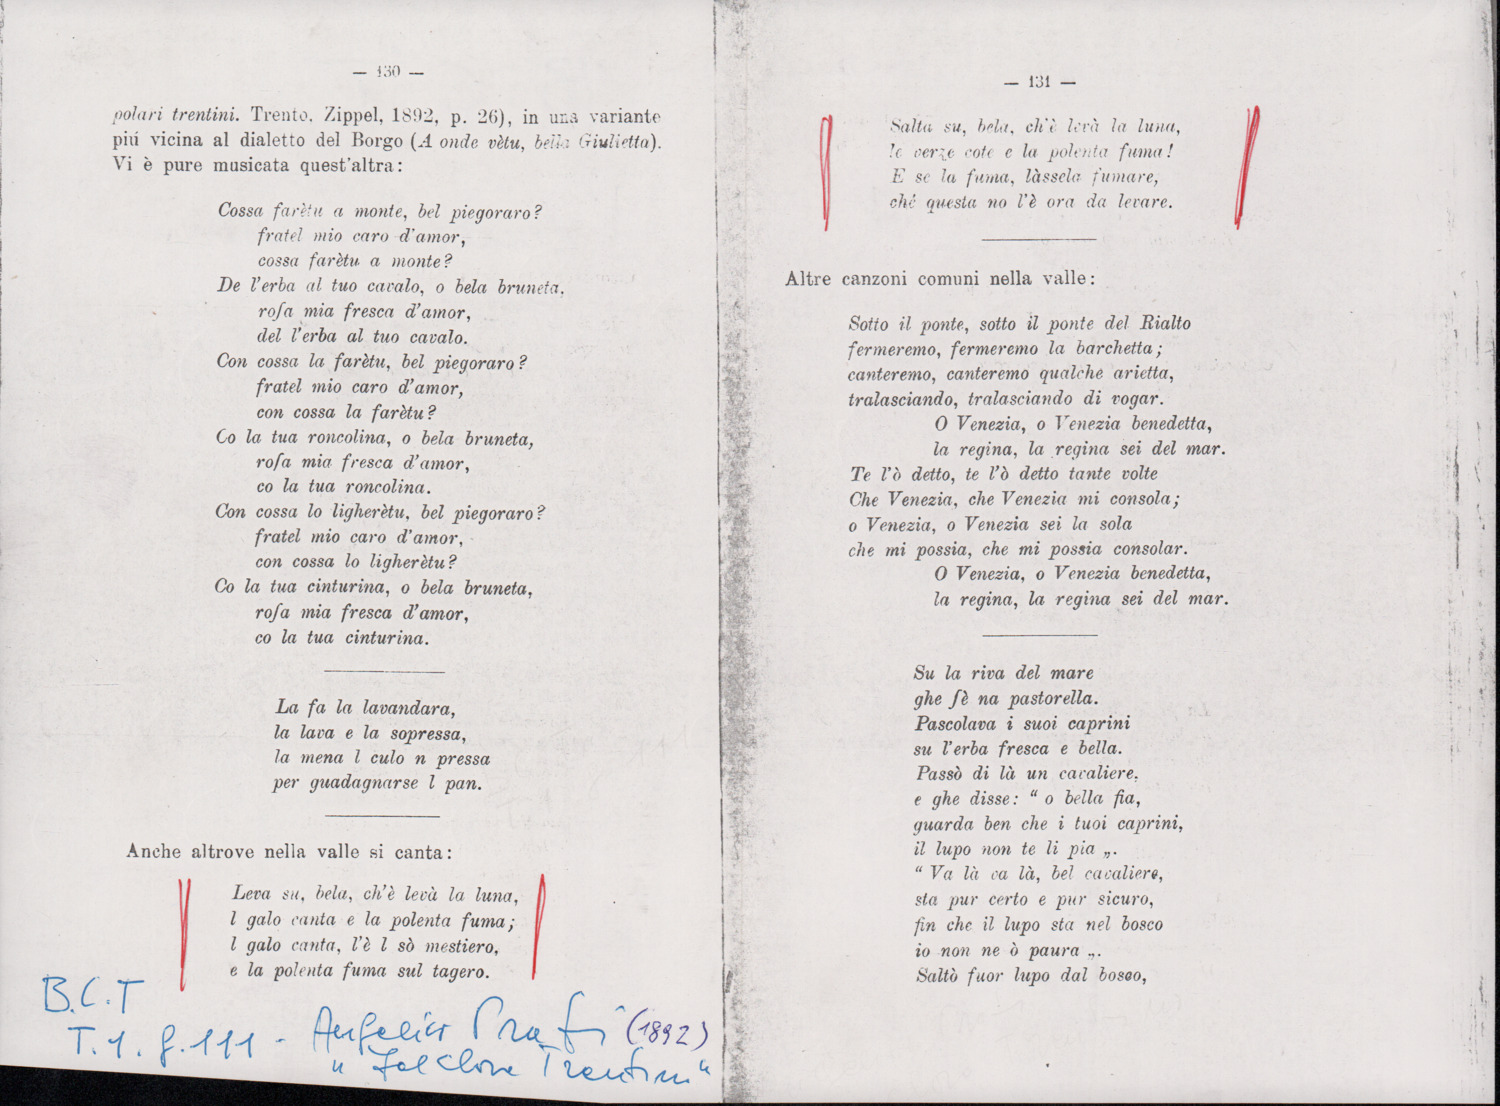 — 130 —
polari trentini. Trento. Zippel, 1892, p. 26), in una variante
piú vicina al dialetto del Borgo (A onde vètu, bella Giulietta).
Vi è pure musicata quest'altra:
Cossa farètu a monte, bel piegoraro?
fratel mio caro d'amor,
cossa farètu a monte?
De l'erba al tuo cavalo, o bela bruneta,
roſa mia fresca d'amor,
del l'erba al tuo cavalo.
Con cossa la farètu, bel piegoraro?
fratel mio caro d'amor,
con cossa la farètu?
Co la tua roncolina, o bela bruneta,
roſa mia fresca d'amor,
co la tua roncolina.
Con cossa lo ligherètu, bel piegoraro?
fratel mio caro d'amor,
con cossa lo ligherètu?
Co la tua cinturina, o bela bruneta,
roſa mia fresca d'amor,
co la tua cinturina.
La fa la lavandara,
la lava e la sopressa,
la mena l culo n pressa
per guadagnarse l pan.
Anche altrove nella valle si canta:
Leva su, bela, ch'è levà la luna,
l galo canta e la polenta fuma;
l galo canta, l'è l sò mestiero,
e la polenta fuma sul tagero.
B.C.T
T.1. g.111 - Angelico Prati (1892)
"Folclore Trentino"
— 131 —
Salta su, bela, ch'è levà la luna,
le verze cote e la polenta fuma!
E se la fuma, làssela fumare,
ché questa no l'è ora da levare.
Altre canzoni comuni nella valle:
Sotto il ponte, sotto il ponte del Rialto
fermeremo, fermeremo la barchetta;
canteremo, canteremo qualche arietta,
tralasciando, tralasciando di vogar.
O Venezia, o Venezia benedetta,
la regina, la regina sei del mar.
Te l'ò detto, te l'ò detto tante volte
Che Venezia, che Venezia mi consola;
o Venezia, o Venezia sei la sola
che mi possia, che mi possia consolar.
O Venezia, o Venezia benedetta,
la regina, la regina sei del mar.
Su la riva del mare
ghe ſè na pastorella.
Pascolava i suoi caprini
su l'erba fresca e bella.
Passò di là un cavaliere,
e ghe disse: “ o bella fia,
guarda ben che i tuoi caprini,
il lupo non te li pia „.
“ Va là va là, bel cavaliere,
sta pur certo e pur sicuro,
fin che il lupo sta nel bosco
io non ne ò paura „.
Saltò fuor lupo dal bosco,